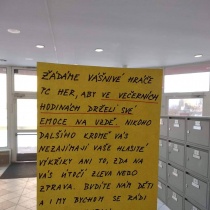 ŽÁDÁME VÁŠNIVÉ HRÁČE
PC HER, ABY VE VEČERNÍCH
HODINÁCH DRŽELI SVÉ
EMOCE NA UZDĚ. NIKOHO
DALŠÍHO KROMĚ VÁS
NEZAJÍMAJÍ VAŠE HLASITÉ
VÝKŘIKY ANI TO, ZDA NA
VÁS ÚTOČÍ ZLEVA NEBO
ZPRAVA. BUDÍTE NÁM DĚTI
A I MY BYCHOM SE RÁDI